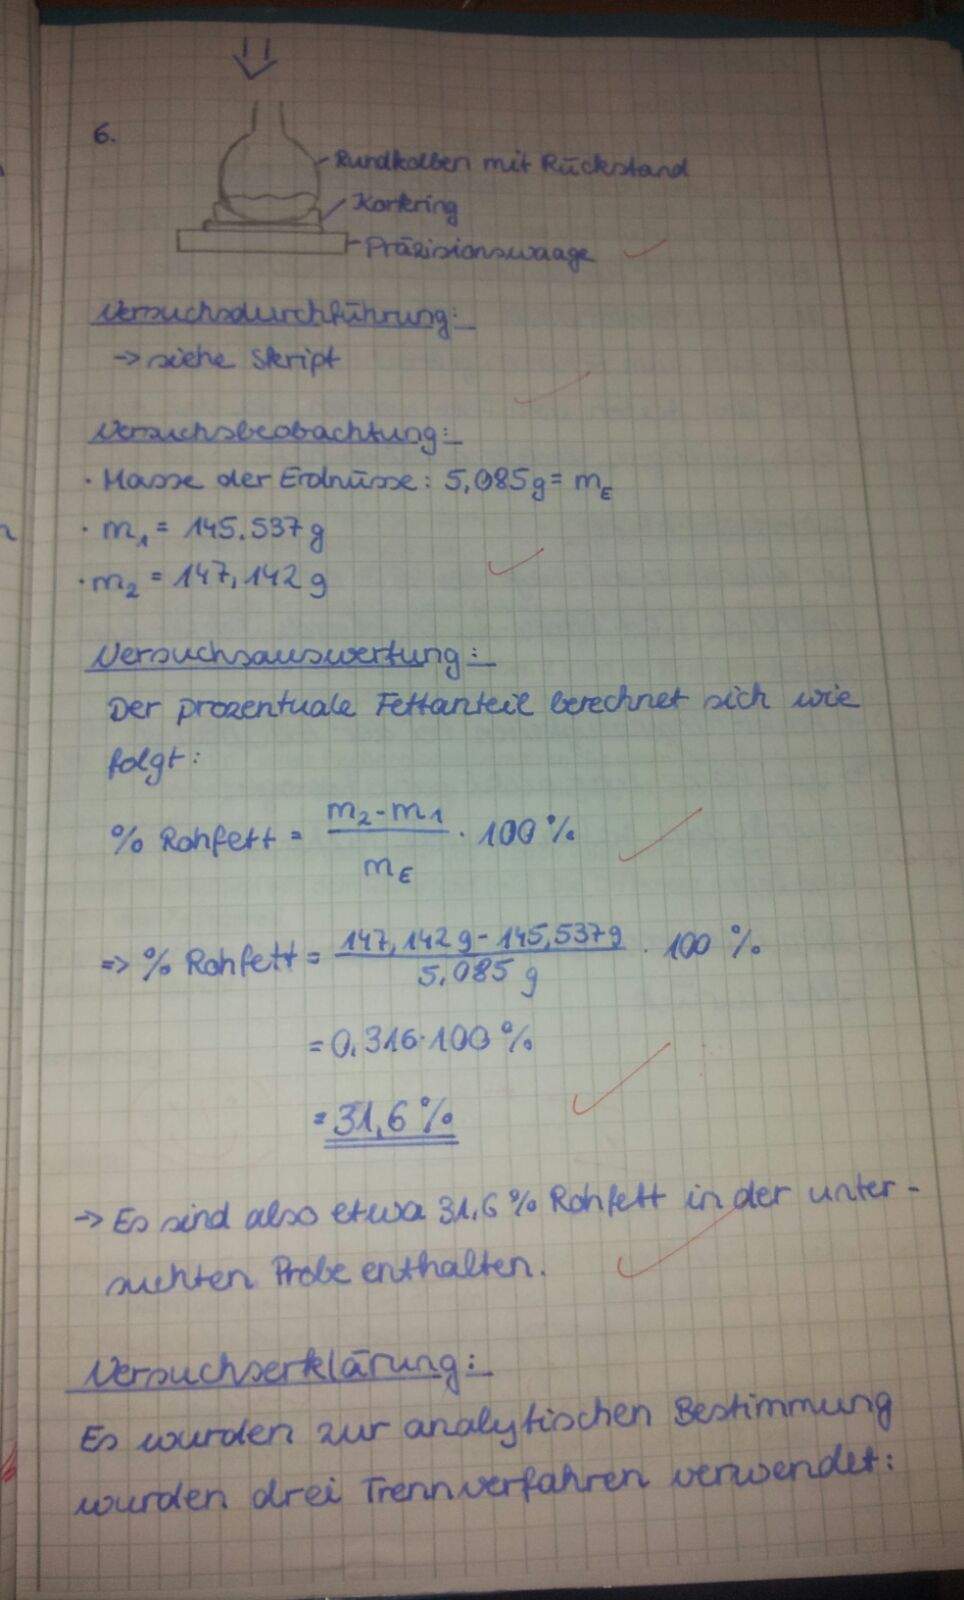 6.
Rundkolben mit Rückstand
Korkring
Präzisionswaage
Versuchsdurchführung:
→ siehe Skript
Versuchsbeobachtung:
· Masse der Erdnüsse: 5,085g = mE
· m1 = 145.537g
· m2 = 147,142g
Versuchsauswertung:
Der prozentuale Fettanteil berechnet sich wie
folgt:
% Rohfett = (m2-m1)/mE · 100%
=> % Rohfett = (147,142g - 145,537g)/5,085g · 100 %
= 0,316·100%
= 31,6%
→ Es sind also etwa 31,6% Rohfett in der unter-
suchten Probe enthalten.
Versuchserklärung:
Es wurden zur analytischen Bestimmung
wurden drei Trennverfahren verwendet: